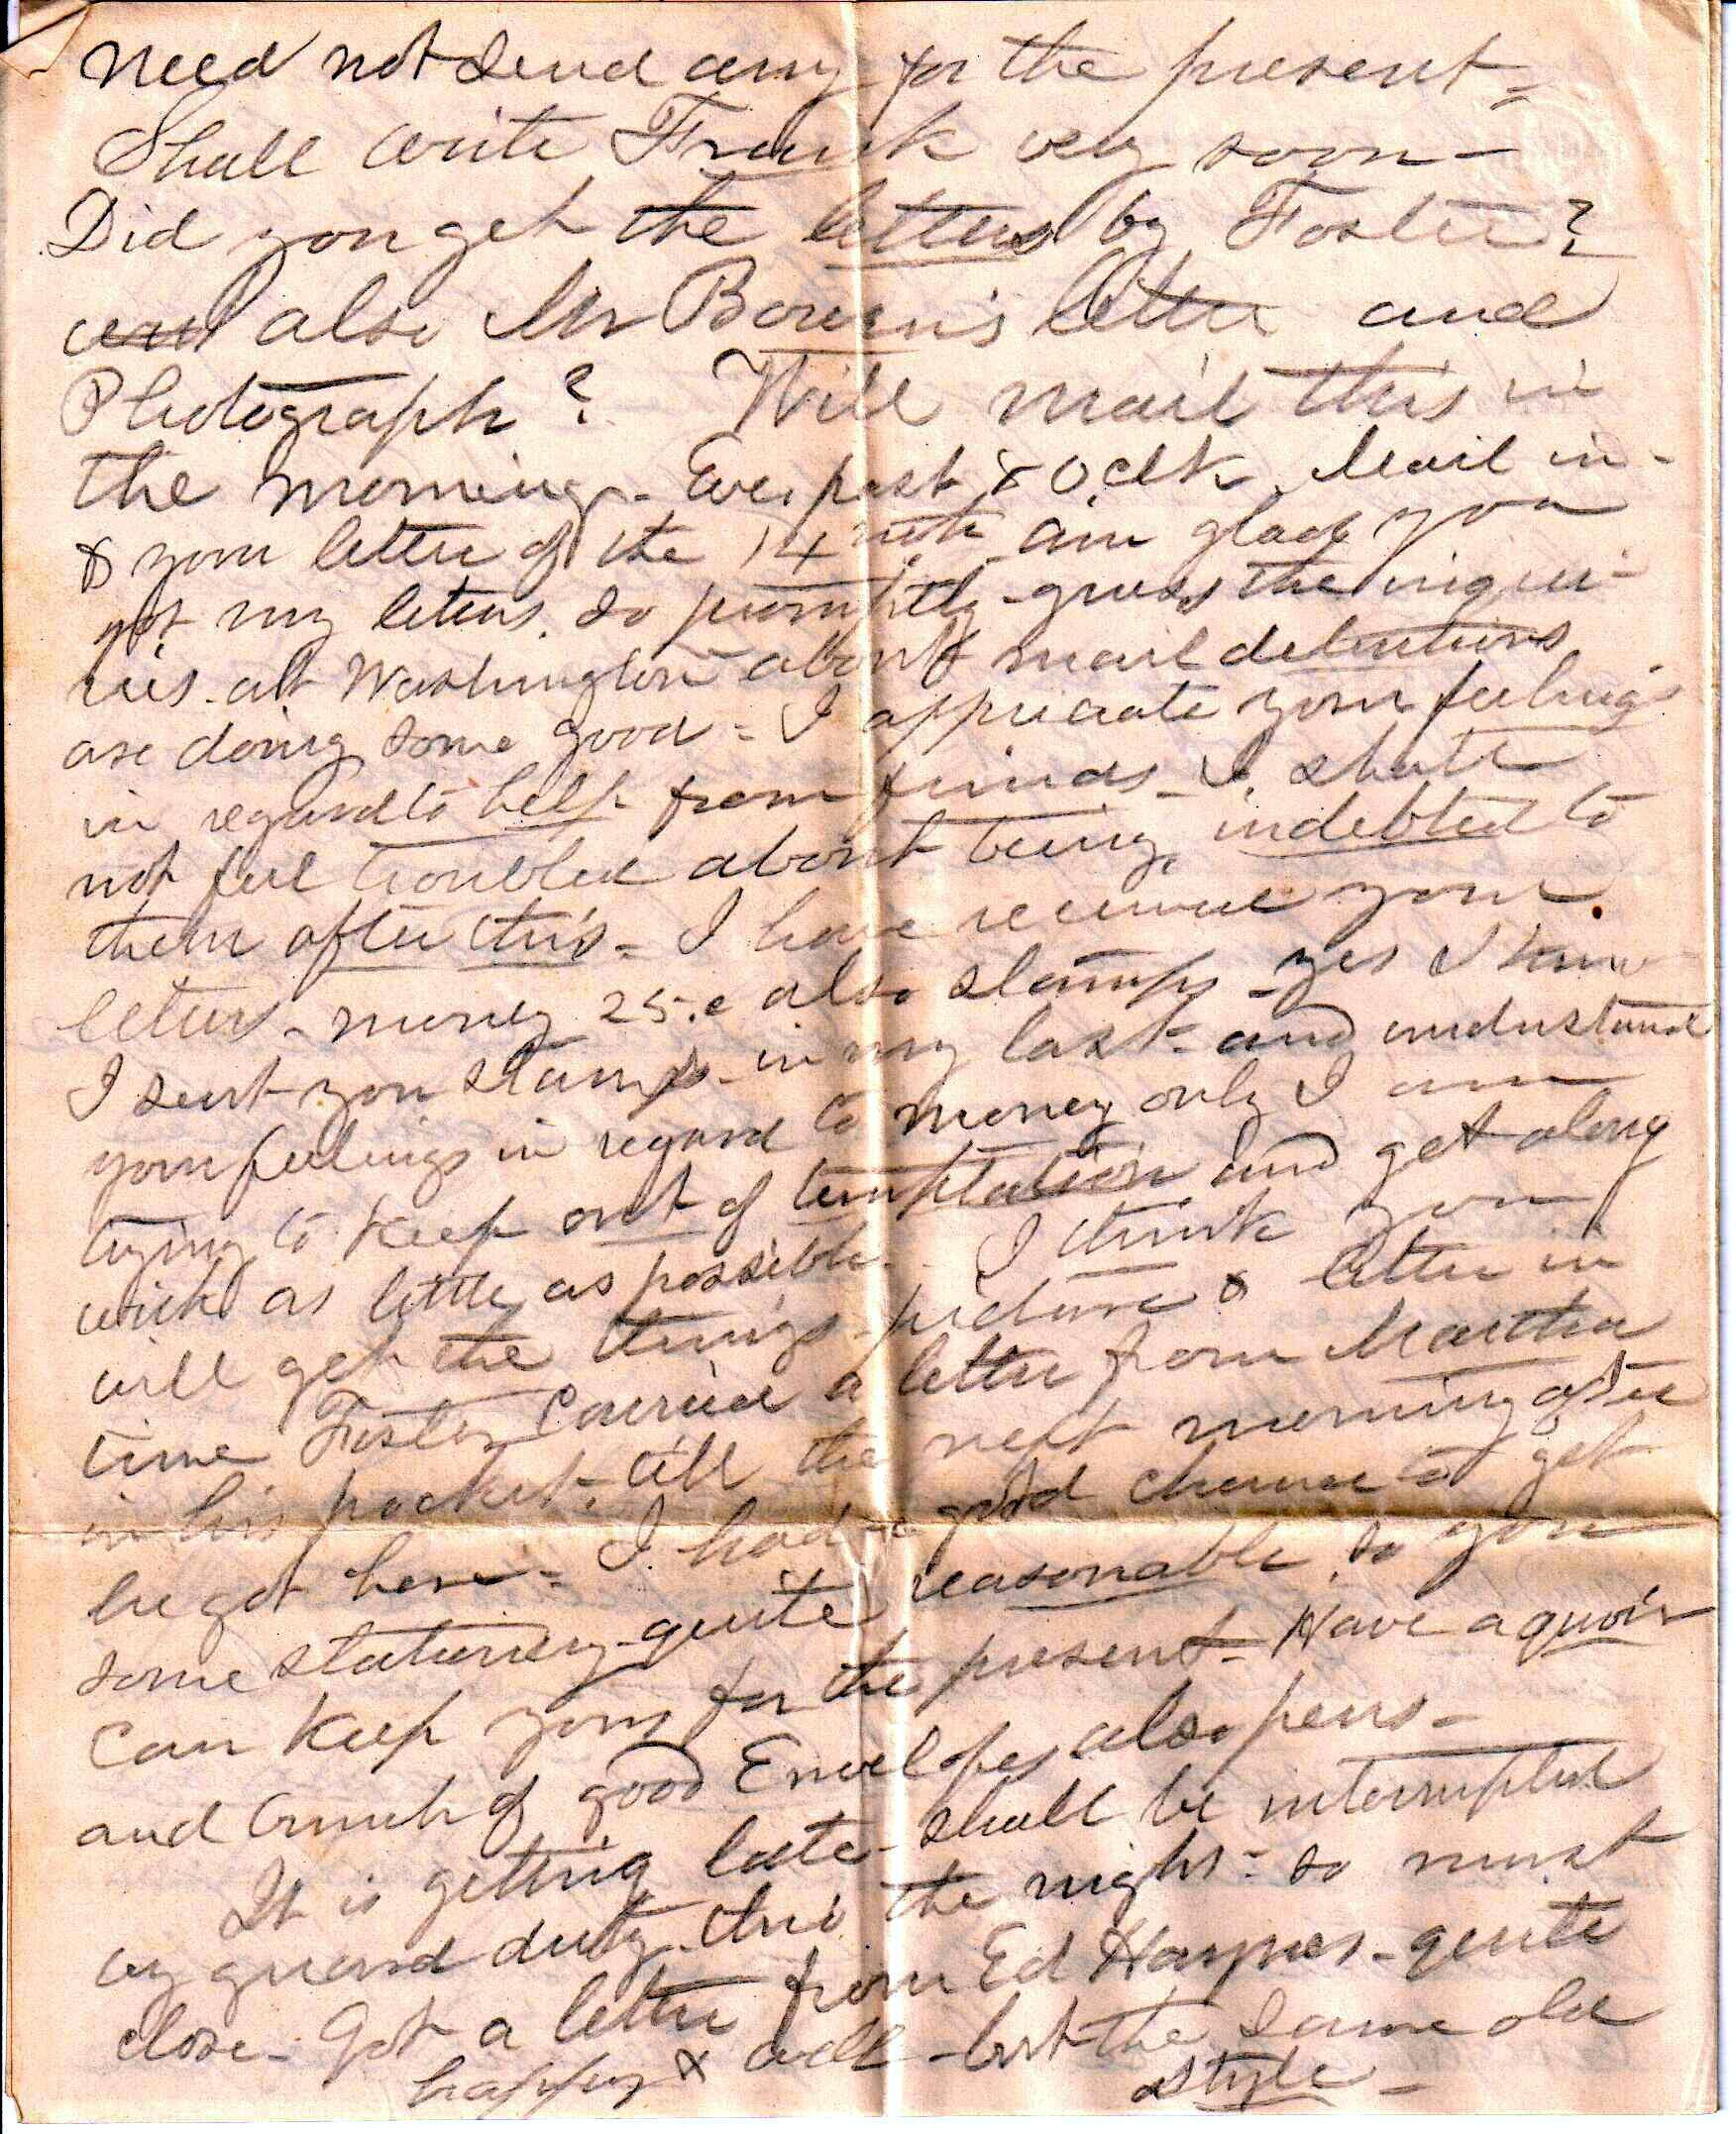 need not send any for the present =
Shall write Frank very soon -
Did you get the letters by Foster?
and also Mr Bowen's letter and
Photograph? Will mail this in
the morning - Eve. past 8 O.clk Mail in -
& your letter of the 14 am glad you
got my leters. so promptly - guess the inquir-
ies at Washington about mail detentions
are doing some good = I appriciate your feelings
in regard to help from friends - I shall
not feel troubled about being indebted to
them after this = I have received your
letters - money 25.c also stamps - yes I know
I sent you stamps - in my last - and understand
your feelings in regard to money only I am
trying to keep out of temptation and get along
with as little as possible - I think you
will get the things - picture & letter in
time Foster carried a letter from Martha
in his pocket. till the next morning after
he got here = I had a good chance to get
some stationery - quite reasonable. so you
can keep yours for the present - Have a quoir
and bunch of good Envelopes also pens -
It is getting late - shall be interrupted
by guard duty. thro' the night = so must
close - Got a letter from Ed Haynes - quite
happy & well - but the same old
style -